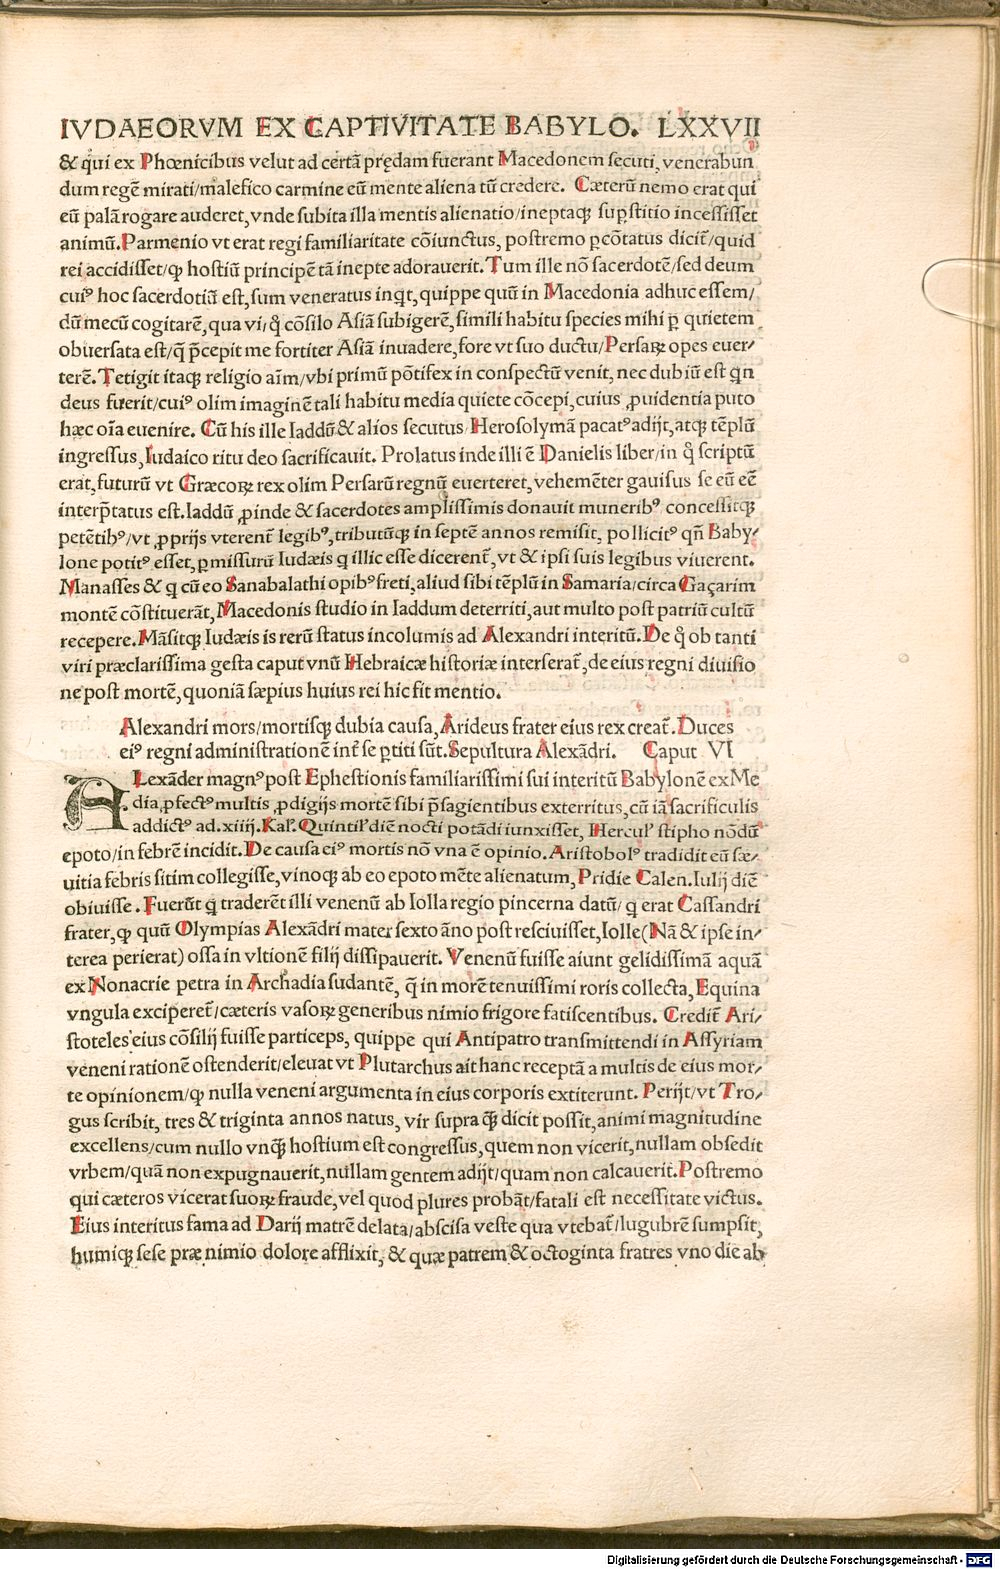 IVDAEORVM EX CAPTIVITATE BABYLO. LXXVII
& qui ex Phœnicibus velut ad certã prędam fuerant Macedonem secuti, venerabun
dum regẽ mirati/malefico carmine eũ mente aliena tũ credere. Cæterũ nemo erat qui
eũ palã rogare auderet, vnde subita illa mentis alienatio/ineptaqꝫ suꝑstitio incessisset
animũ. Parmenio vt erat regi familiaritate cõiunctus, postremo ꝑcõtatus dicit̃/quid
rei accidisset/ꝙ hostiũ principẽ tã inepte adorauerit. Tum ille nõ sacerdotẽ/sed deum
cuiꝰ hoc sacerdotiũ est, sum veneratus inq̃t, quippe quũ in Macedonia adhuc essem/
dũ mecũ cogitarẽ, qua vi/q̊ cõsilo Asiã subigerẽ, simili habitu species mihi ꝑ quietem
obuersata est/q̃ p̃cepit me fortiter Asiã inuadere, fore vt suo ductu/Persaꝝ opes euer⸗
terẽ. Tetigit itaqꝫ religio aĩm/vbi primũ põtifex in conspectũ venit, nec dubiũ est qn̄
deus fuerit/cuiꝰ olim imaginẽ tali habitu media quiete cõcepi, cuius ꝓuidentia puto
hæc oĩa euenire. Cũ his ille Iaddũ & alios secutus Herosolymã pacatꝰ adijt, atqꝫ tẽplũ
ingressus, Iudaico ritu deo sacrificauit. Prolatus inde illi ẽ Danielis liber/in q̊ scriptũ
erat, futurũ vt Græcoꝝ rex olim Persarũ regnũ euerteret, vehemẽter gauisus se eũ eẽ
interp̃tatus est. Iaddũ ꝓinde & sacerdotes amplissimis donauit muneribꝰ concessitqꝫ
petẽtibꝰ/vt ꝓprijs vterent̃ legibꝰ, tributũqꝫ in septẽ annos remisit, pollicitꝰ qñ Baby⸗
lone potitꝰ esset, ꝑmissurũ Iudæis q illic esse dicerent̃, vt & ipsi suis legibus viuerent.
Manasses & q cũ eo Sanabalathi opibꝰ freti, aliud sibi tẽplũ in Samaria/circa Gaçarim
montẽ cõstituerãt, Macedonis studio in Iaddum deterriti, aut multo post patriũ cultũ
recepere. Mãsitqꝫ Iudæis is rerũ status incolumis ad Alexandri interitũ. De q̊ ob tanti
viri præclarissima gesta caput vnũ Hebraicæ historiæ interserat̃, de eius regni diuisio
ne post mortẽ, quoniã sæpius huius rei hic fit mentio.
Alexandri mors/mortisqꝫ dubia causa, Arideus frater eius rex creat̃. Duces
eiꝰ regni administrationẽ int̃ se ꝑtiti sũt. Sepultura Alexãdri. Caput VI
ALexãder magnꝰ post Ephestionis familiarissimi sui interitũ Babylonẽ ex Me
dia, ꝓfectꝰ multis ꝓdigijs mortẽ sibi p̃sagientibus exterritus, cũ iã sacrificulis
addictꝰ ad. xiiij. Kaľ. Quintiľ diẽ nocti potãdi iunxisset, Herculˀ stipho nõdũ
epoto/in febrẽ incidit. De causa eiꝰ mortis nõ vna ẽ opinio. Aristobolꝰ tradidit eũ sæ⸗
uitia febris sitim collegisse, vinoqꝫ ab eo epoto mẽte alienatum, Pridie Calen. Iulij diẽ
obiuisse. Fuerũt q traderẽt illi venenũ ab Iolla regio pincerna datũ/q erat Cassandri
frater, ꝙ quũ Olympias Alexãdri mater sexto ãno post resciuisset, Iolle (Nã & ipse in⸗
terea perierat) ossa in vltionẽ filij dissipauerit. Venenũ fuisse aiunt gelidissimã aquã
ex Nonacrie petra in Archadia sudantẽ, q̃ in morẽ tenuissimi roris collecta, Equina
vngula exciperet̃/cæteris vasoꝝ generibus nimio frigore fatiscentibus. Credit̃ Ari⸗
stoteles eius cõsilij fuisse particeps, quippe qui Antipatro transmittendi in Assyriam
veneni rationẽ ostenderit/eleuat vt Plutarchus ait hanc receptã a multis de eius mor⸗
te opinionem/ꝙ nulla veneni argumenta in eius corporis extiterunt. Perijt/vt Tro⸗
gus scribit, tres & triginta annos natus, vir supra q̃ dicit possit, animi magnitudine
excellens/cum nullo vnq̃ hostium est congressus, quem non vicerit, nullam obsedit
vrbem/quã non expugnauerit, nullam gentem adijt/quam non calcauerit. Postremo
qui cæteros vicerat suoꝝ fraude, vel quod plures probãt/fatali est necessitate victus.
Eius interitus fama ad Darij matrẽ delata/abscisa veste qua vtebat̃/lugubrẽ sumpsit,
humiqꝫ sese præ nimio dolore afflixit, & quæ patrem & octoginta fratres vno die ab
Digitalisierung gefördert durch die Deutsche Forschungsgemeinschaft - DFG